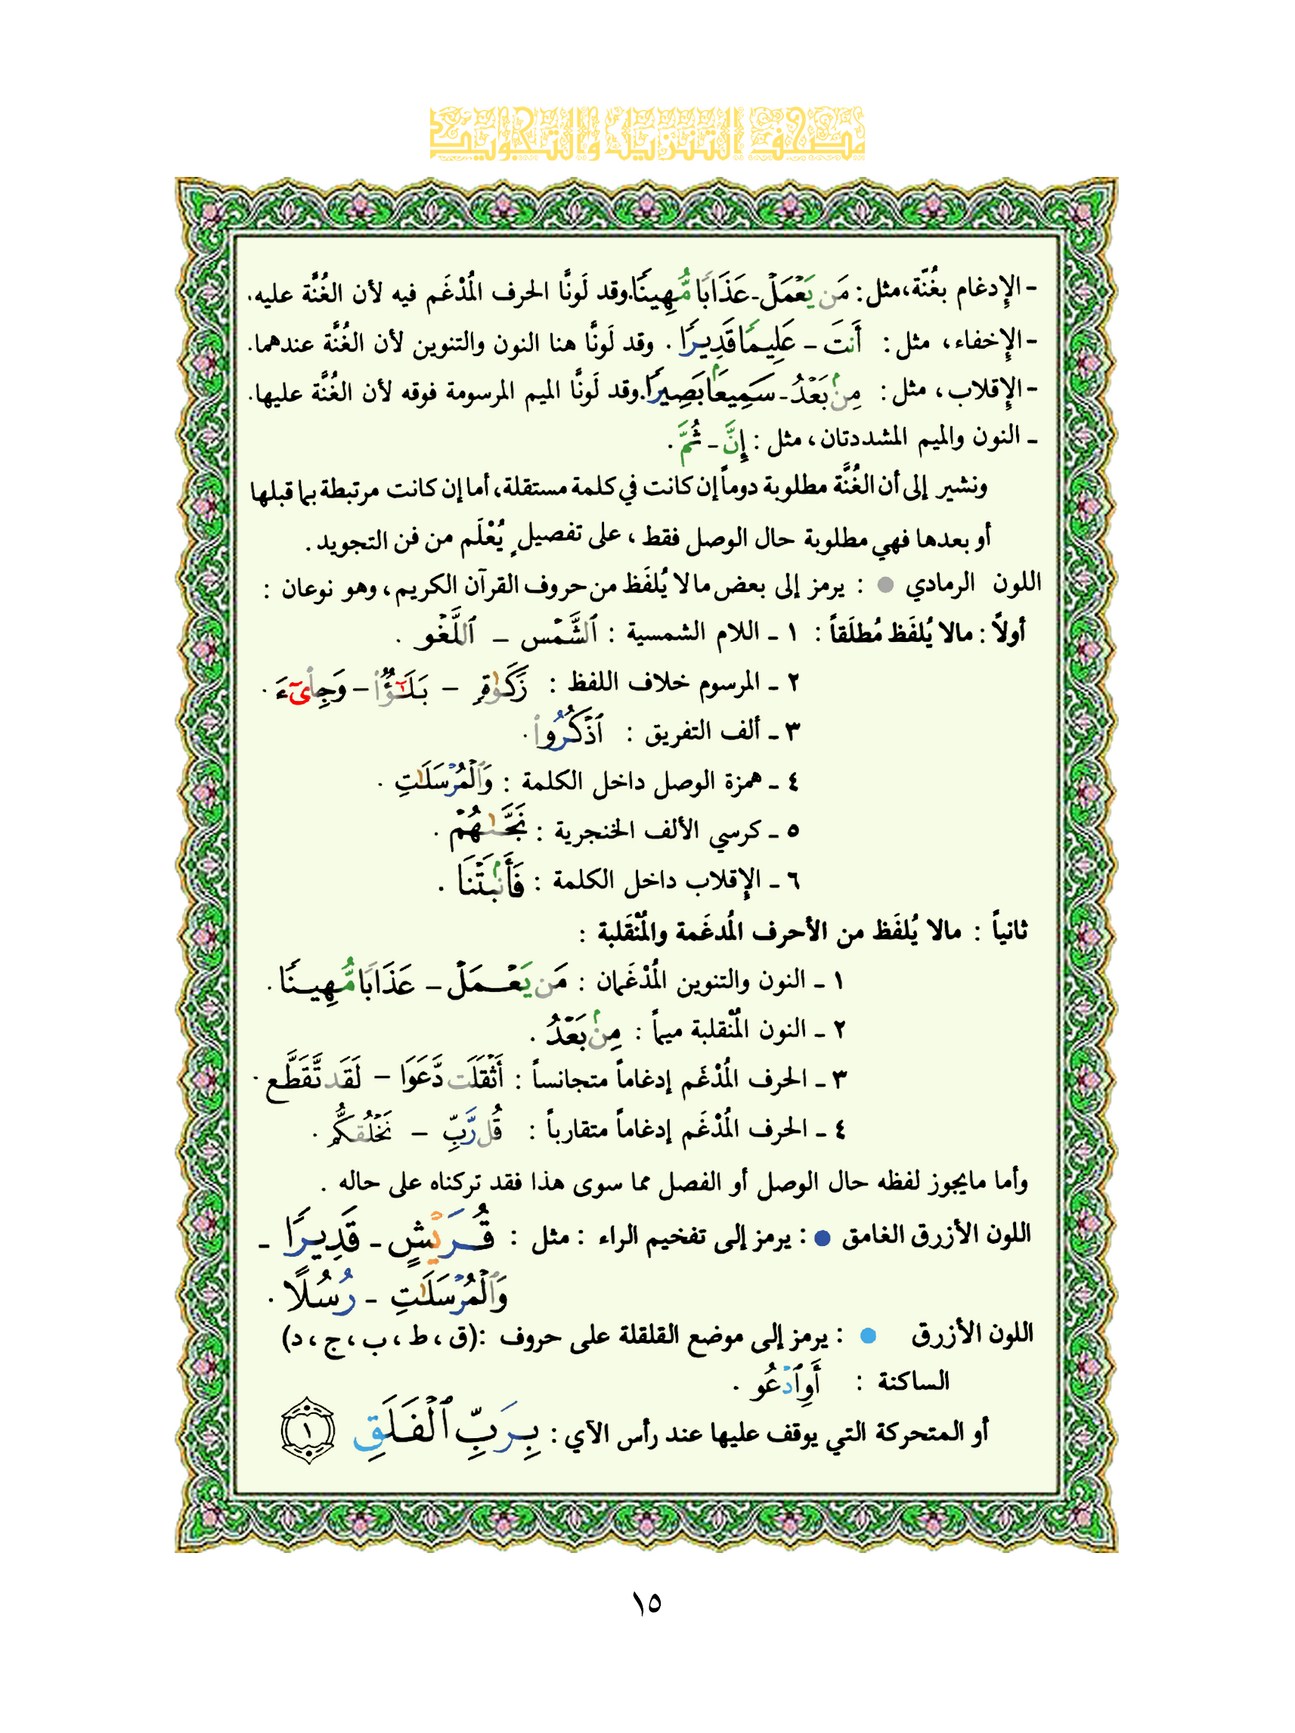 مصحف التنزيل والتجويد
- الإدغام بغُنّة، مثل: مَن يَعۡمَلۡ - عَذَابٗا مُّهِينٗا. وقد لَونَّا الحرف المُدْغَم فيه لأن الغُنَّة عليه.
- الإخفاء، مثل: أَنتَ - عَلِيمٗا قَدِيرٗا. وقد لَونَّا هنا النون والتنوين لأن الغُنَّة عندهما.
- الإقلاب، مثل: مِنۢ بَعۡدُ - سَمِيعَۢا بَصِيرٗا. وقد لَونَّا الميم المرسومة فوقه لأن الغُنَّة عليها.
- النون والميم المشددتان، مثل: إِنَّ - ثُمَّ.
ونشير إلى أن الغُنَّة مطلوبة دوماً إن كانت في كلمة مستقلة، أما إن كانت مرتبطة بما قبلها
أو بعدها فهي مطلوبة حال الوصل فقط، على تفصيلٍ يُعْلَم من فن التجويد.
اللون الرمادي ● : يرمز إلى بعض مالا يُلفَظ من حروف القرآن الكريم، وهو نوعان :
أولاً : مالا يُلفَظ مُطلَقاً : ١ - اللام الشمسية : ٱلشَّمۡس - ٱللَّغۡو .
٢ - المرسوم خلاف اللفظ : زَكَوٰةٖ - بَلَٰٓؤٞاْ - وَجِاْيٓءَ .
٣ - ألف التفريق : ٱذۡكُرُواْ .
٤ - همزة الوصل داخل الكلمة : وَٱلۡمُرۡسَلَٰتِ .
٥ - كرسي الألف الخنجرية : نَجَّىٰهُمۡ .
٦ - الإقلاب داخل الكلمة : فَأَنۢبَتۡنَا .
ثانياً : مالا يُلفَظ من الأحرف المُدغَمة والمُنْقَلبة :
١ - النون والتنوين المُدْغَمان : مَن يَعۡمَلۡ - عَذَابٗا مُّهِينٗا .
٢ - النون المُنْقلبة ميماً : مِنۢ بَعۡدُ .
٣ - الحرف المُدْغَم إدغاماً متجانساً : أَثۡقَلَت دَّعَوَا - لَقَد تَّقَطَّعَ .
٤ - الحرف المُدْغَم إدغاماً متقارباً : قُل رَّبِّ - نَخۡلُقكُّم .
وأما مايجوز لفظه حال الوصل أو الفصل مما سوى هذا فقد تركناه على حاله .
اللون الأزرق الغامق ● : يرمز إلى تفخيم الراء : مثل : قُرَيۡشٍ - قَدِيرٗا -
وَٱلۡمُرۡسَلَٰتِ - رُسُلٗا .
اللون الأزرق ● : يرمز إلى موضع القلقلة على حروف :(ق، ط، ب، ج، د)
الساكنة : أَوِ ٱدۡعُو .
أو المتحركة التي يوقف عليها عند رأس الآي : بِرَبِّ ٱلۡفَلَقِ ١
١٥